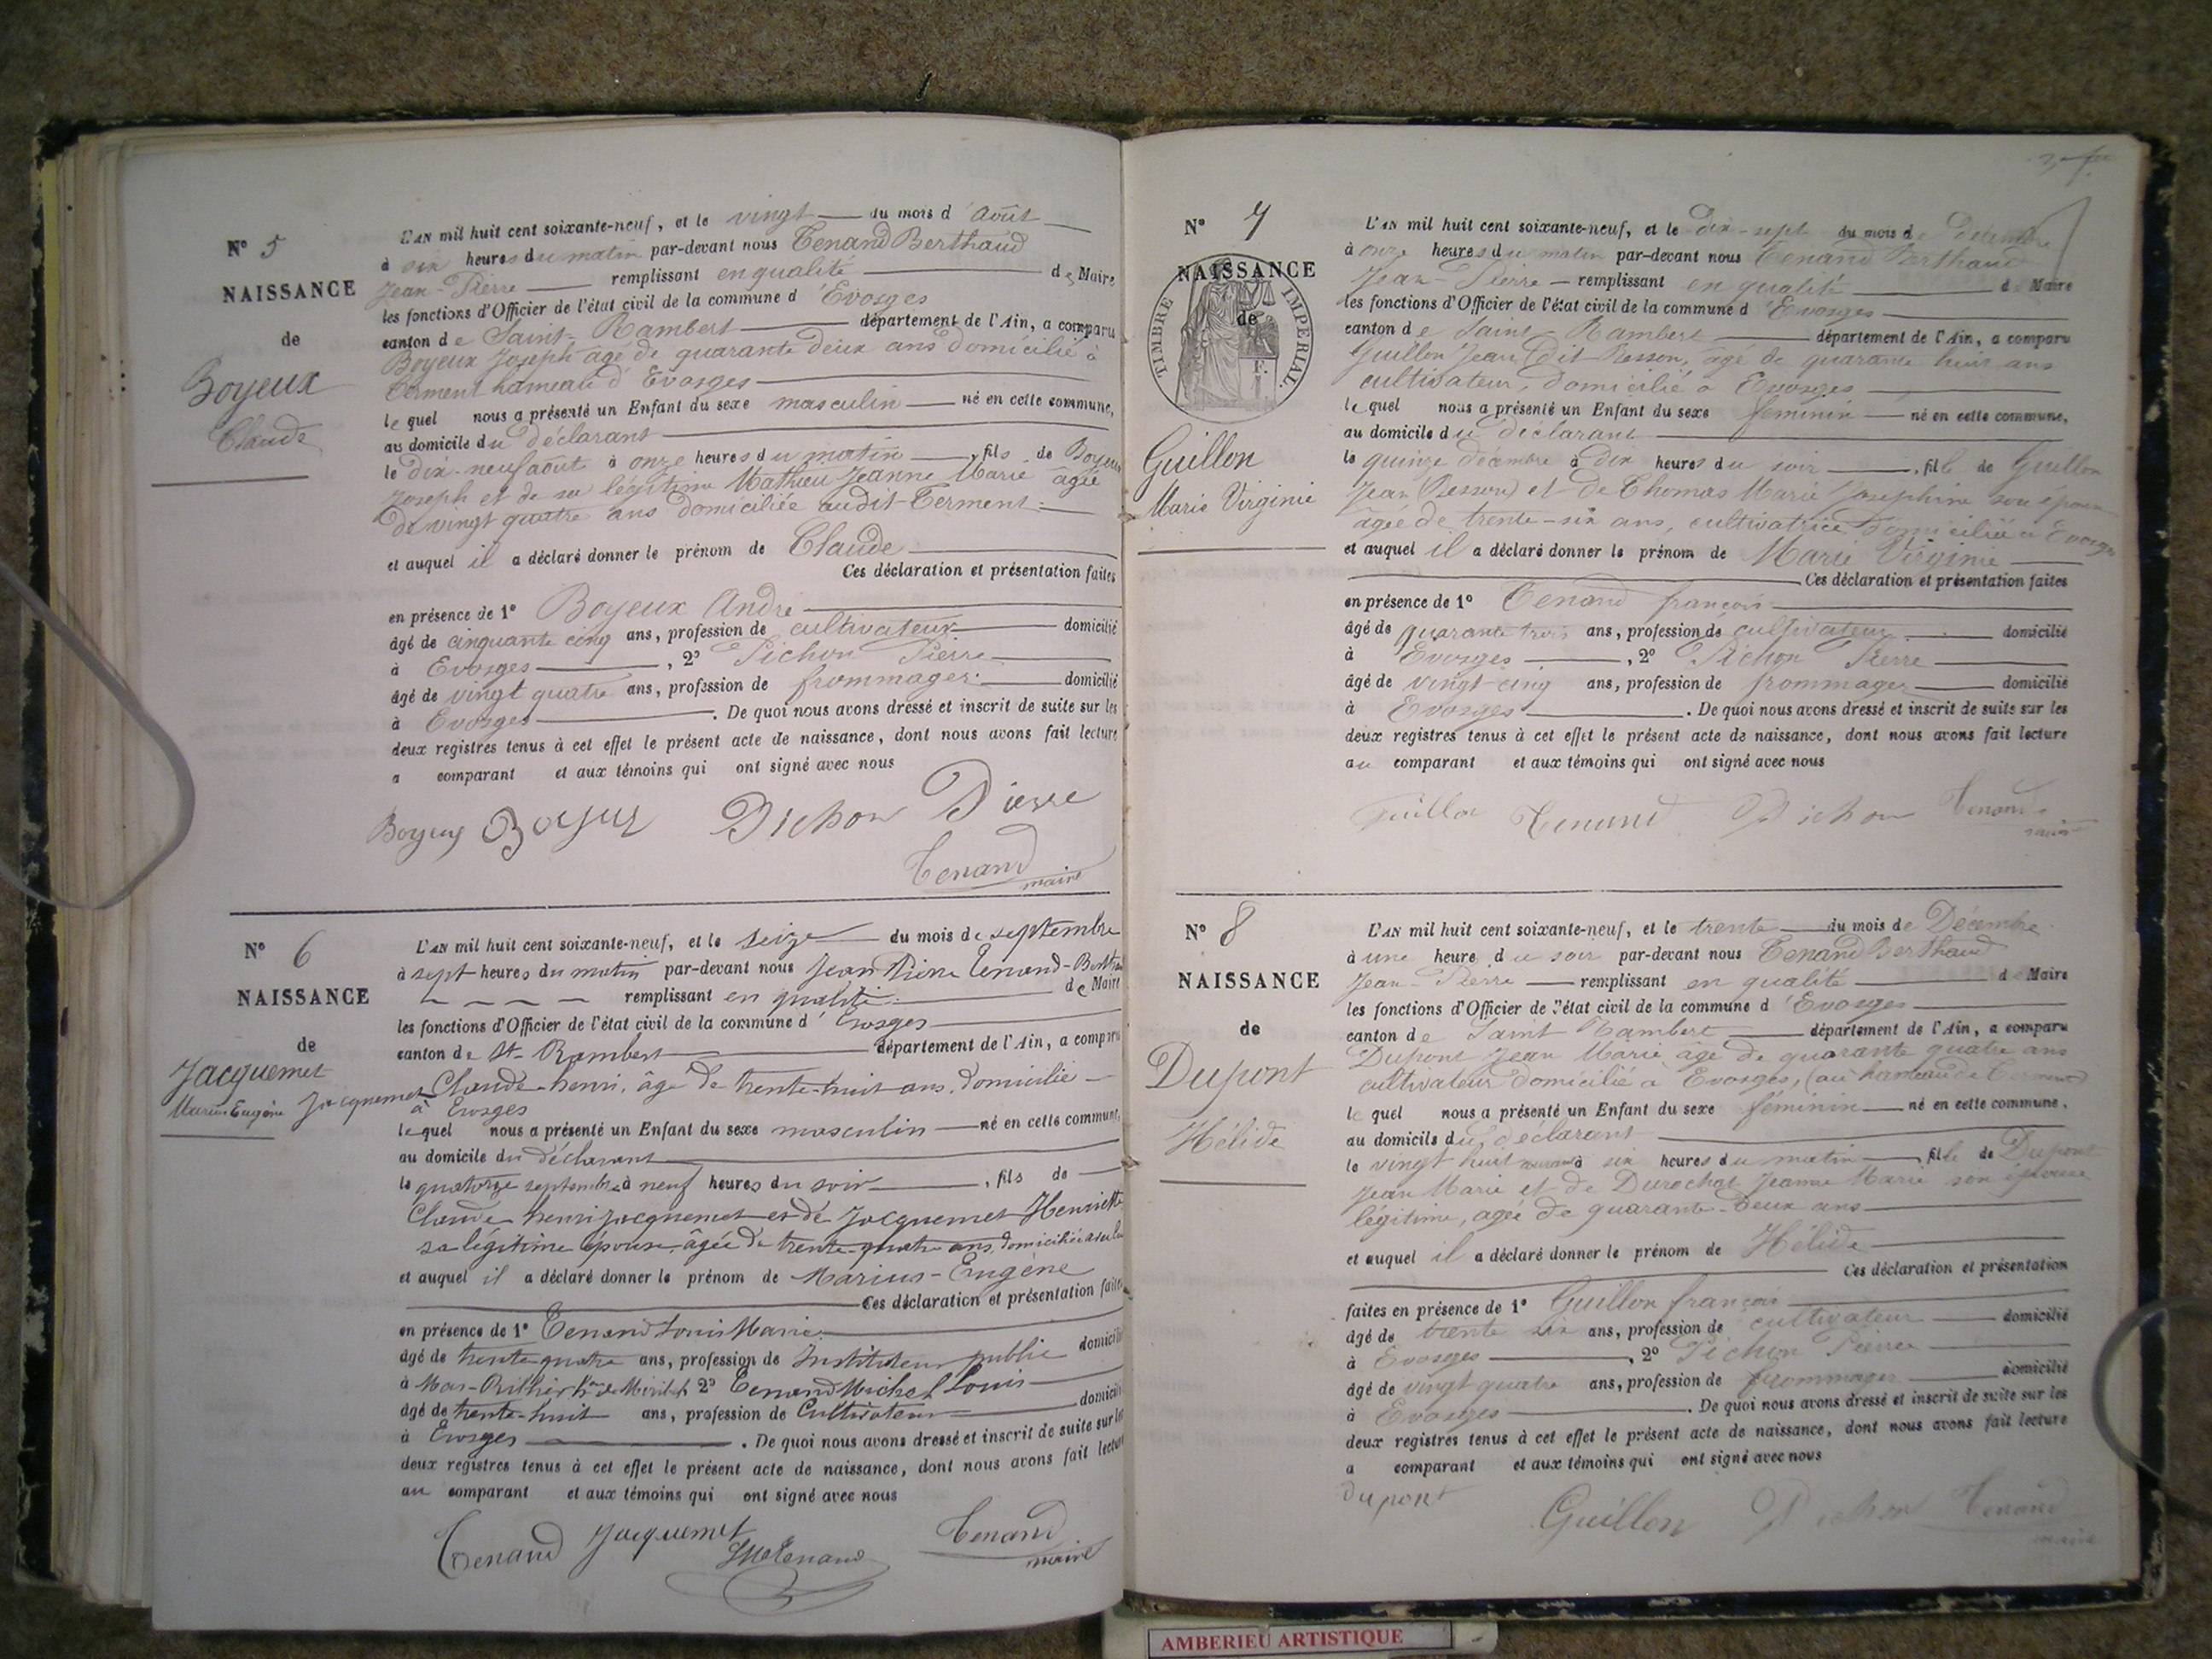 N° 5
NAISSANCE
de
Boyeux
Claude
L'AN mil huit cent soixante-neuf, et le vingt du mois d'Août
à six heures du matin par-devant nous Tenand Berthaud
Jean-Pierre remplissant en qualité de Maire
les fonctions d'Officier de l'état civil de la commune d'Evosges
canton de Saint-Rambert département de l'Ain, a comparu
Boyeux Joseph âgé de quarante deux ans domicilié à
hameau d'Evosges
lequel nous a présenté un Enfant du sexe masculin né en cette commune,
au domicile du déclarant
le dix-neuf août à onze heures du matin, fils de Boyeux
Joseph et de sa légitime Mathieu Jeanne Marie âgée
de vingt quatre ans domiciliée audit
et auquel il a déclaré donner le prénom de Claude
Ces déclaration et présentation faites
en présence de 1° Boyeux André
âgé de cinquante cinq ans, profession de cultivateur domicilié
à Evosges, 2° Pichon Pierre
âgé de vingt quatre ans, profession de frommager domicilié
à Evosges. De quoi nous avons dressé et inscrit de suite sur les
deux registres tenus à cet effet le présent acte de naissance, dont nous avons fait lecture
a comparant et aux témoins qui ont signé avec nous
Boyeux Boyeux Pichon Pierre
Tenand
maire
N° 6
NAISSANCE
de
Jacquemet
Marius Eugène
L'AN mil huit cent soixante-neuf, et le seize du mois de septembre
à sept heures du matin par-devant nous Jean Pierre Tenand-Berthaud
remplissant en qualité de Maire
les fonctions d'Officier de l'état civil de la commune d'Evosges
canton de St-Rambert département de l'Ain, a comparu
Jacquemet Claude-henri, âgé de trente-huit ans, domicilié
à Evosges
lequel nous a présenté un Enfant du sexe masculin né en cette commune,
au domicile du déclarant
le quatorze septembre à neuf heures du soir, fils de
Claude henri Jacquemet et de Jacquemet Henriette
sa légitime épouse, âgée de trente-quatre ans, domiciliée
et auquel il a déclaré donner le prénom de Marius-Eugène
Ces déclaration et présentation faites
en présence de 1° Tenand Louis Marie
âgé de trente quatre ans, profession de Instituteur public domicilié
à 2° Tenand Michel Louis
âgé de trente-huit ans, profession de Cultivateur domicilié
à Evosges. De quoi nous avons dressé et inscrit de suite sur les
deux registres tenus à cet effet le présent acte de naissance, dont nous avons fait lecture
au comparant et aux témoins qui ont signé avec nous
Tenand Jacquemet Tenand
maire
N° 7
NAISSANCE
de
TIMBRE IMPERIAL.
F.
Guillon
Marie Virginie
L'AN mil huit cent soixante-neuf, et le dix-sept du mois de Décembre
à onze heures du matin par-devant nous Tenand Berthaud
Jean-Pierre remplissant en qualité de Maire
les fonctions d'Officier de l'état civil de la commune d'Evosges
canton de Saint Rambert département de l'Ain, a comparu
Guillon Jean (dit Besson, âgé de quarante huit ans
cultivateur, domicilié à Evosges
lequel nous a présenté un Enfant du sexe féminin né en cette commune,
au domicile du déclarant
le quinze décembre à dix heures du soir, fille de Guillon
Jean (Besson) et de Thomas Marie Josephine son épouse
âgée de trente-six ans, cultivatrice domiciliée à Evosges
et auquel il a déclaré donner le prénom de Marie Virginie
Ces déclaration et présentation faites
en présence de 1° Tenand françois
âgé de quarante trois ans, profession de cultivateur domicilié
à Evosges, 2° Pichon Pierre
âgé de vingt-cinq ans, profession de frommager domicilié
à Evosges. De quoi nous avons dressé et inscrit de suite sur les
deux registres tenus à cet effet le présent acte de naissance, dont nous avons fait lecture
au comparant et aux témoins qui ont signé avec nous
Guillon Tenand Pichon Tenand
maire
N° 8
NAISSANCE
de
Dupont
Hélide
L'AN mil huit cent soixante-neuf, et le trente du mois de Décembre
à une heure du soir par-devant nous Tenand Berthaud
Jean-Pierre remplissant en qualité de Maire
les fonctions d'Officier de l'état civil de la commune d'Evosges
canton de Saint Rambert département de l'Ain, a comparu
Dupont Jean Marie âgé de quarante quatre ans
cultivateur domicilié à Evosges, (au hameau de
lequel nous a présenté un Enfant du sexe féminin né en cette commune,
au domicile du déclarant
le vingt huit à six heures du matin, fille de Dupont
Jean Marie et de Durochat Jeanne Marie son épouse
légitime, âgée de quarante-deux ans
et auquel il a déclaré donner le prénom de Hélide
Ces déclaration et présentation
faites en présence de 1° Guillon françois
âgé de trente six ans, profession de cultivateur domicilié
à Evosges, 2° Pichon Pierre
âgé de vingt quatre ans, profession de frommager domicilié
à Evosges. De quoi nous avons dressé et inscrit de suite sur les
deux registres tenus à cet effet le présent acte de naissance, dont nous avons fait lecture
a comparant et aux témoins qui ont signé avec nous
Dupont
Guillon Pichon Tenand
maire
AMBERIEU ARTISTIQUE